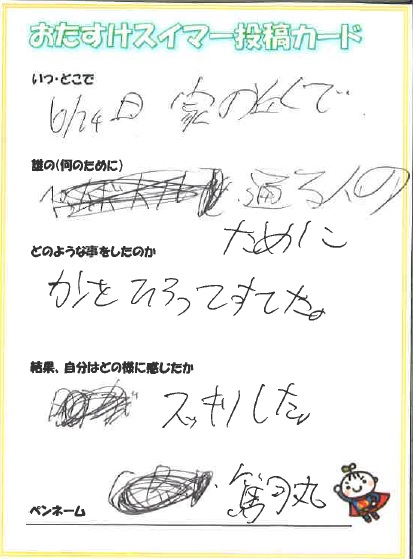 おたすけスイマー投稿カード
いつ・どこで
6/24日 家の近くで
誰の(何のために)
通る人の
ために
どのような事をしたのか
かんをひろってすてた。
結果、自分はどの様に感じたか
スッキリした。
ペンネーム
丸